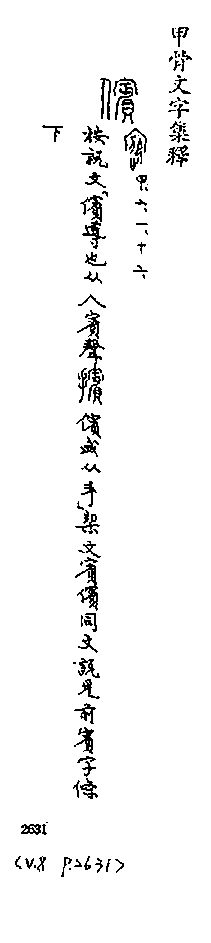 甲骨文字集釋
儐
甲、六、一、十六、
按說文「儐導也从人賓聲擯儐或从手」栔文賓儐同文說見前賓字條
下
2631
(V.8 P.2631)